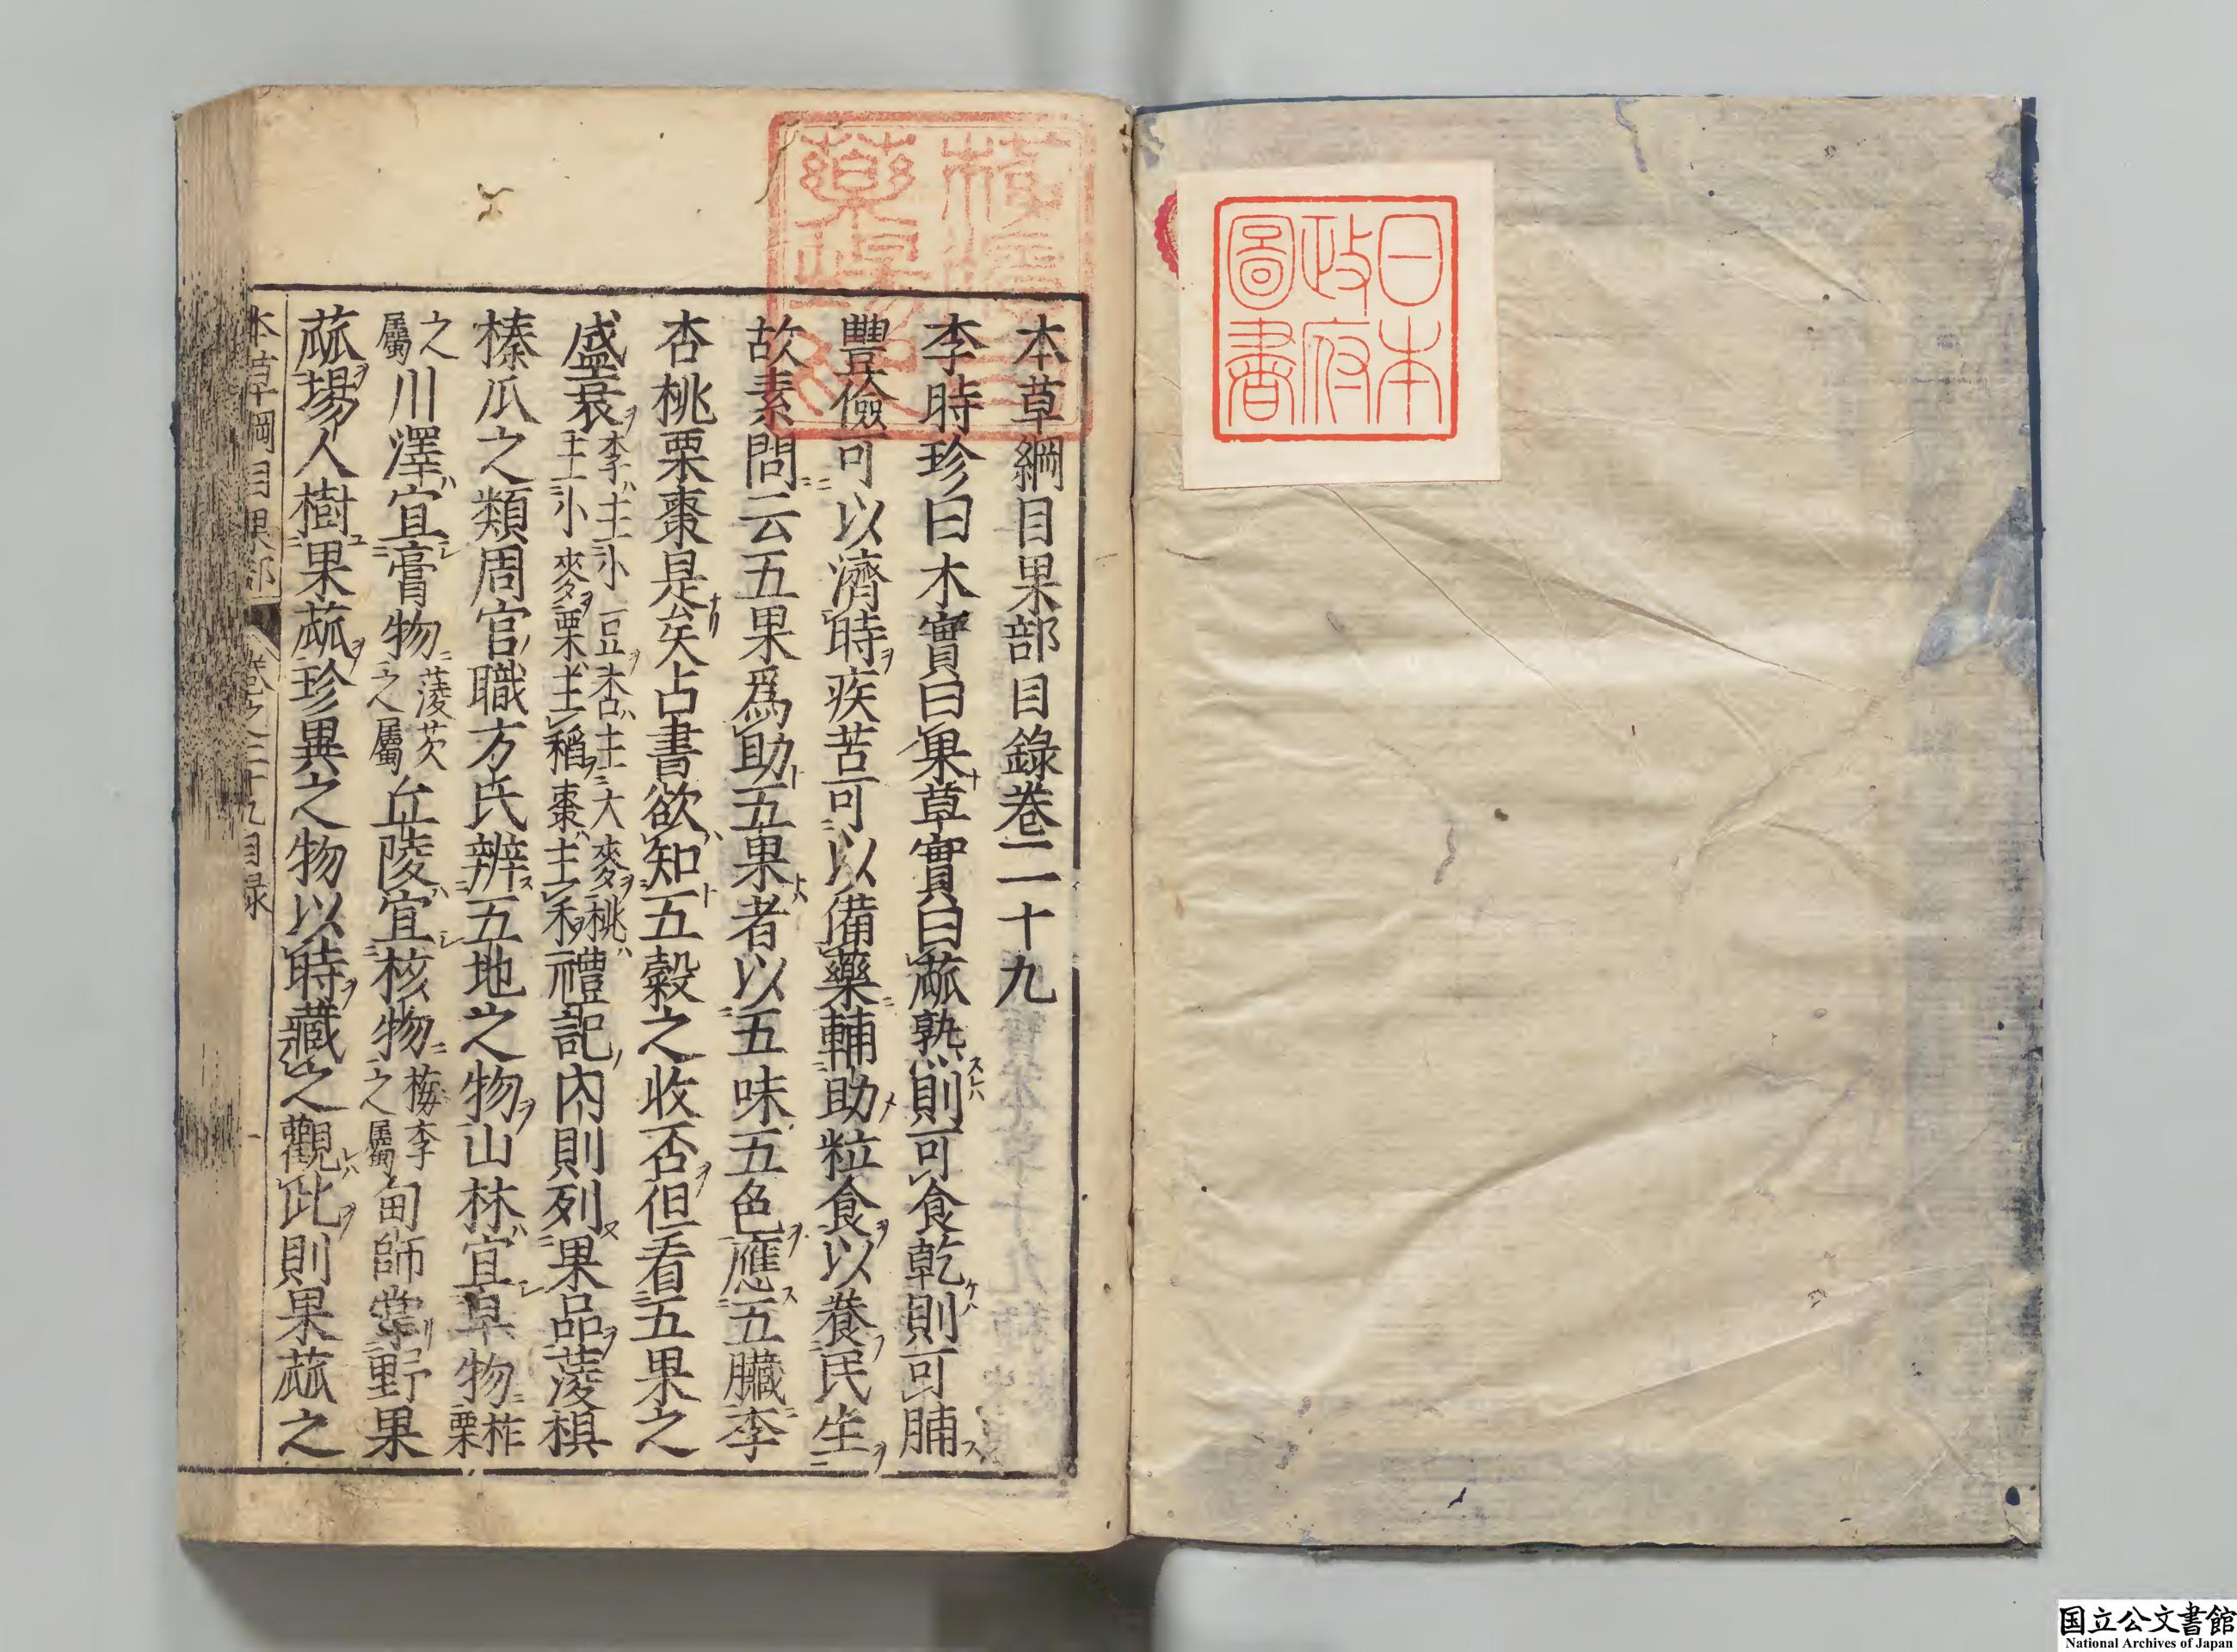 日本
政府
圖書
本草綱目果部目錄卷二十九
李時珍曰木實曰果草實曰蓏熟則可食乾則可脯
豐儉可以濟時疾苦可以備藥輔助粒食以養民生
故素問云五果爲助五果者以五味五色應五臟李
杏桃栗棗是矣占書欲知五穀之收否但看五果之
盛衰李主小豆杏主大麥桃主小麥栗主稻棗主禾禮記內則列果品菱椇
榛瓜之類周官職方氏辨五地之物山林宜皁物柞栗
之屬川澤宜膏物菱芡之屬丘陵宜核物梅李之屬甸師掌野果
蓏場人樹果蓏珍異之物以時藏之觀此則果蓏之
本草綱目果部 卷之二十九目録 一
国立公文書館
National Archives of Japan